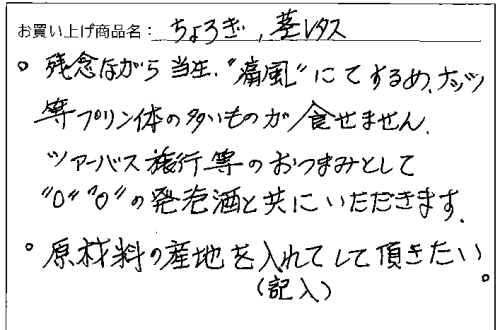 お買い上げ商品名: ちょろぎ, 茎レタス
○ 残念ながら 当生、"痛風"にてするめ、ナッツ
等プリン体の多いものが食せません.
ツアーバス旅行等のおつまみとして
"0""0"の発泡酒と共にいただきます.
○ 原材料の産地を入れてして頂きたい。
(記入)